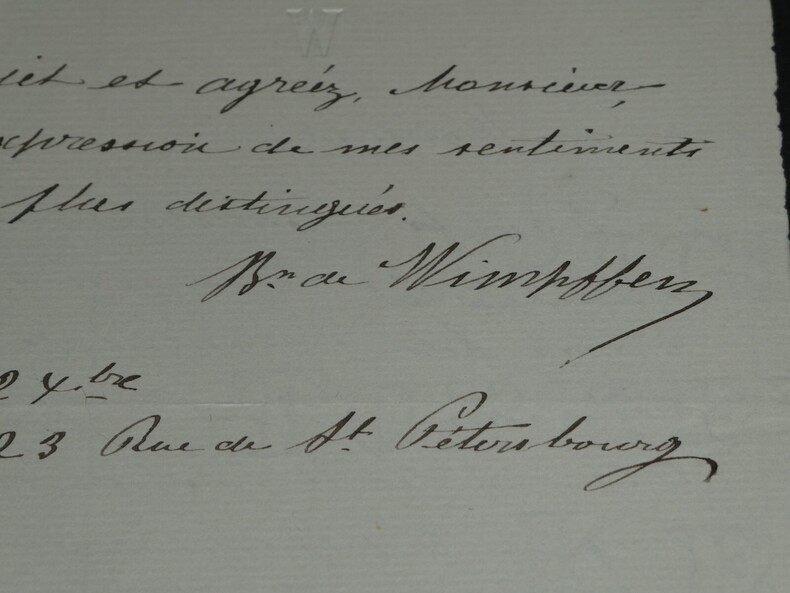 W
jet et agréez, Monsieur,
expression de mes sentiments
plus distingués.
Bn de Wimpffen
24 Xbre
23 Rue de St. Pétersbourg